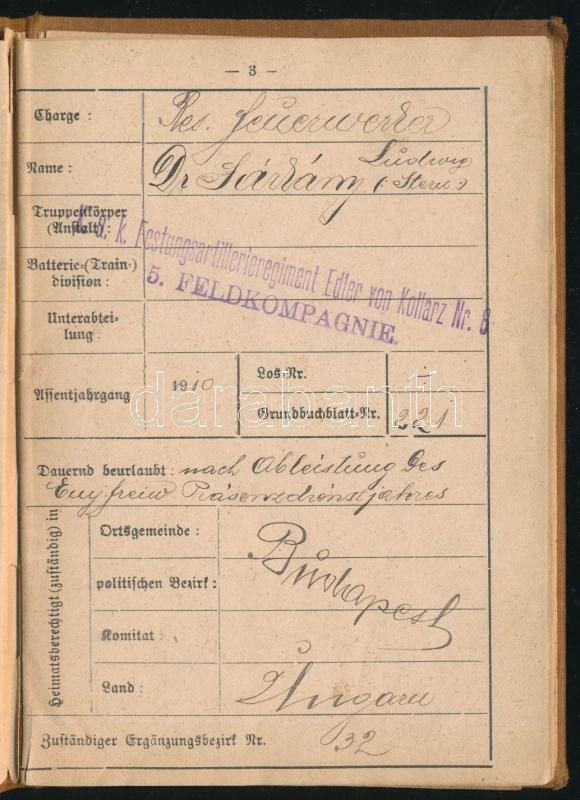 — 3 —
Charge : Res. Feuerwerker
Name : Dr Sárkány Ludwig (: Stern :)
Truppenkörper
(Anstalt) :
K. u. k. Festungsartillerieregiment Edler von Kollarz Nr. 6
5. FELDKOMPAGNIE.
Batterie-(Train-)
division :
Unterabtei-
lung :
Assentjahrgang 1910
Los-Nr. -
Grundbuchblatt-Nr. 221
darabanth
Dauernd beurlaubt : nach Ableistung des
Einj. freiw. Präsenzdienstjahres
Heimatsberechtigt (zuständig) in
Ortsgemeinde :
politischen Bezirk : Budapest
Komitat :
Land : Ungarn
Zuständiger Ergänzungsbezirk Nr. 32